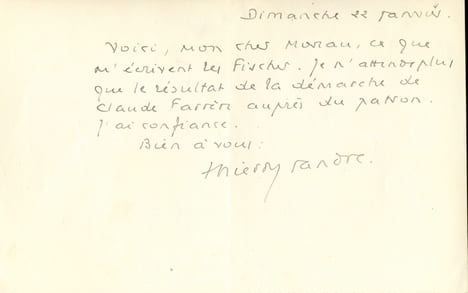 Dimanche 22 janvier.
Voici, mon cher Moreau, ce que
m'écrivent les Fischer. Je n'attends plus
que le résultat de la démarche de
Claude Farrère auprès du patron.
J'ai confiance.
Bien à vous:
Thierry Sandre.